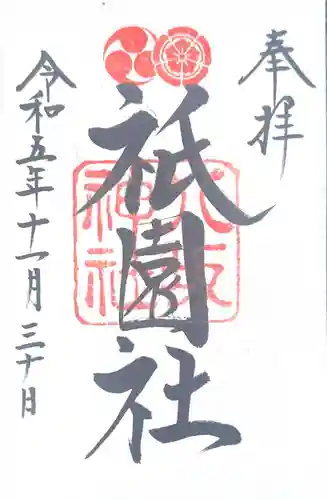 奉拝
祇園社
八坂
神社
令和五年十一月三十日